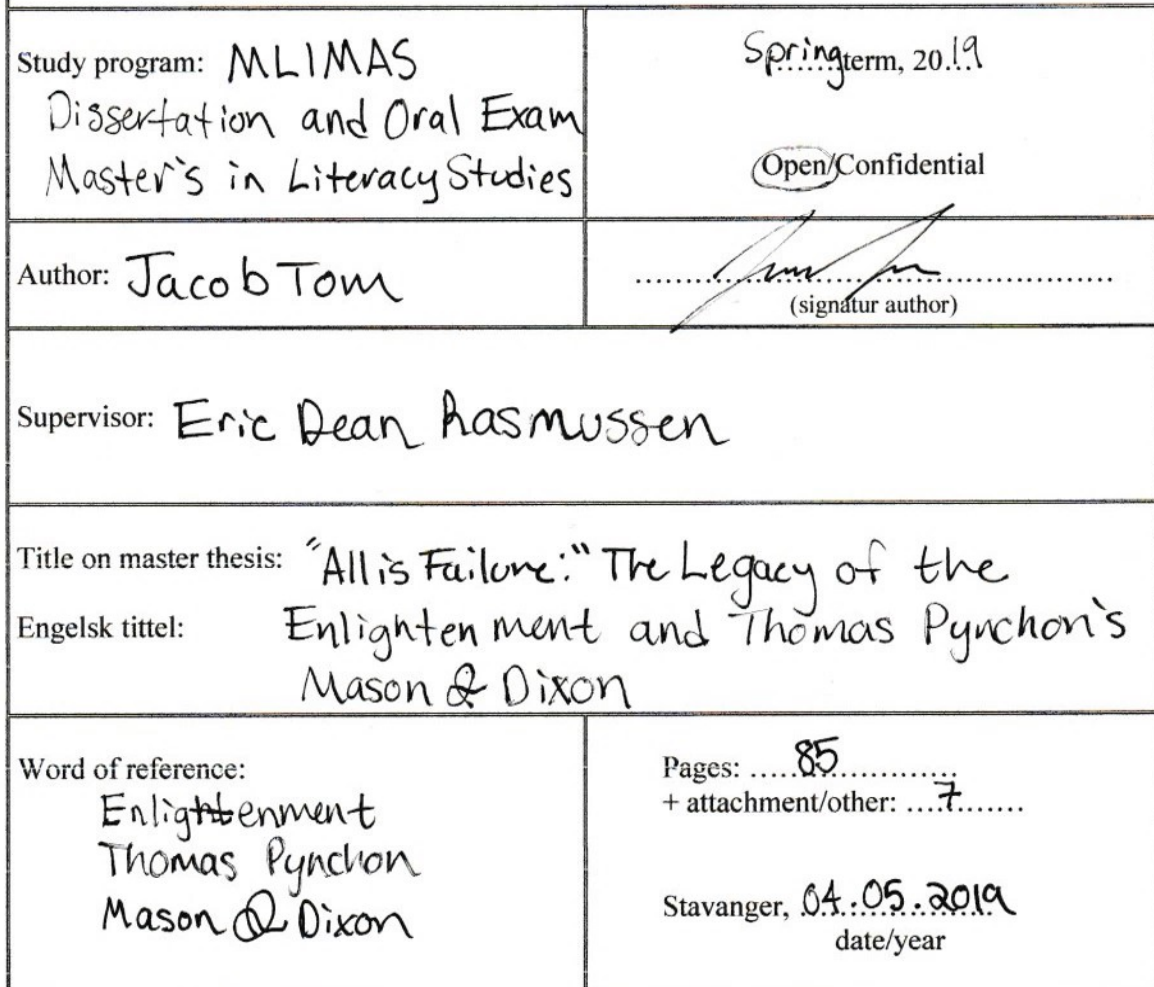 Study program: MLIMAS
Dissertation and Oral Exam
Master's in Literacy Studies
Spring term, 2019
Open/Confidential
Author: Jacob Tom
(signatur author)
Supervisor: Eric Dean Rasmussen
Title on master thesis: "All is Failure:" The Legacy of the
Engelsk tittel: Enlightenment and Thomas Pynchon's
Mason & Dixon
Word of reference:
Enlightenment
Thomas Pynchon
Mason & Dixon
Pages: .....85..............
+ attachment/other: ....7.......
Stavanger, 04.05.2019
date/year